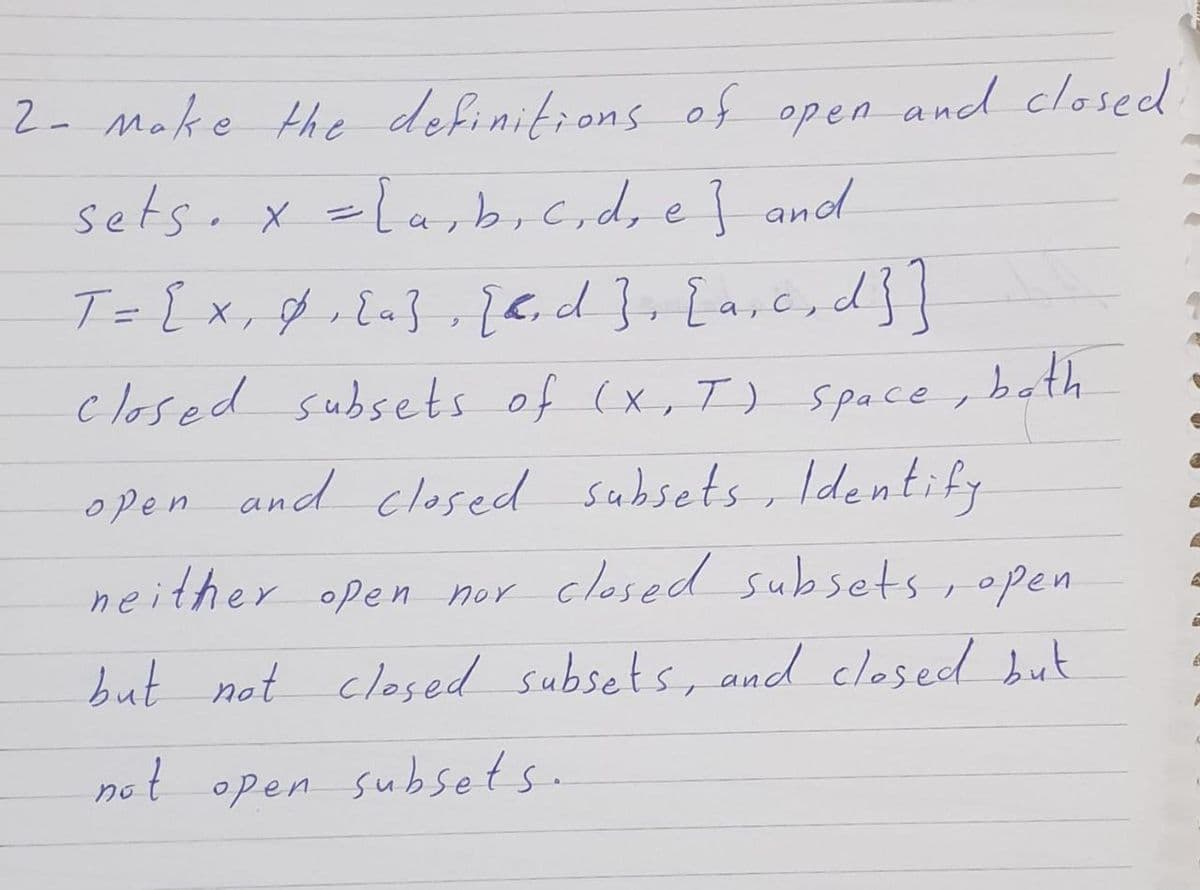 2- Make the definitions of open and closed
sets. x = {a, b, c, d, e} and
T = { x, ø, {a}, {c, d}, {a, c, d}}
closed subsets of (x, T) space, both
open and closed subsets, Identify
neither open nor closed subsets, open
but not closed subsets, and closed but
not open subsets.